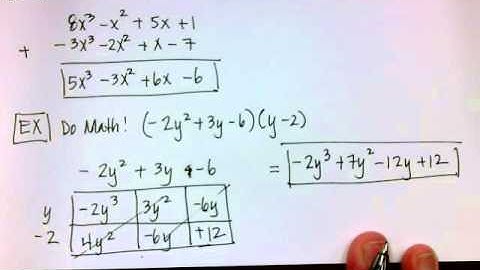 8x³ - x² + 5x + 1
+ -3x³ - 2x² + x - 7
5x³ - 3x² + 6x - 6
EX Do Math! (-2y² + 3y - 6)(y - 2)
-2y² + 3y - 6
= -2y³ + 7y² - 12y + 12
y -2y³ 3y² -6y
-2 4y² -6y +12